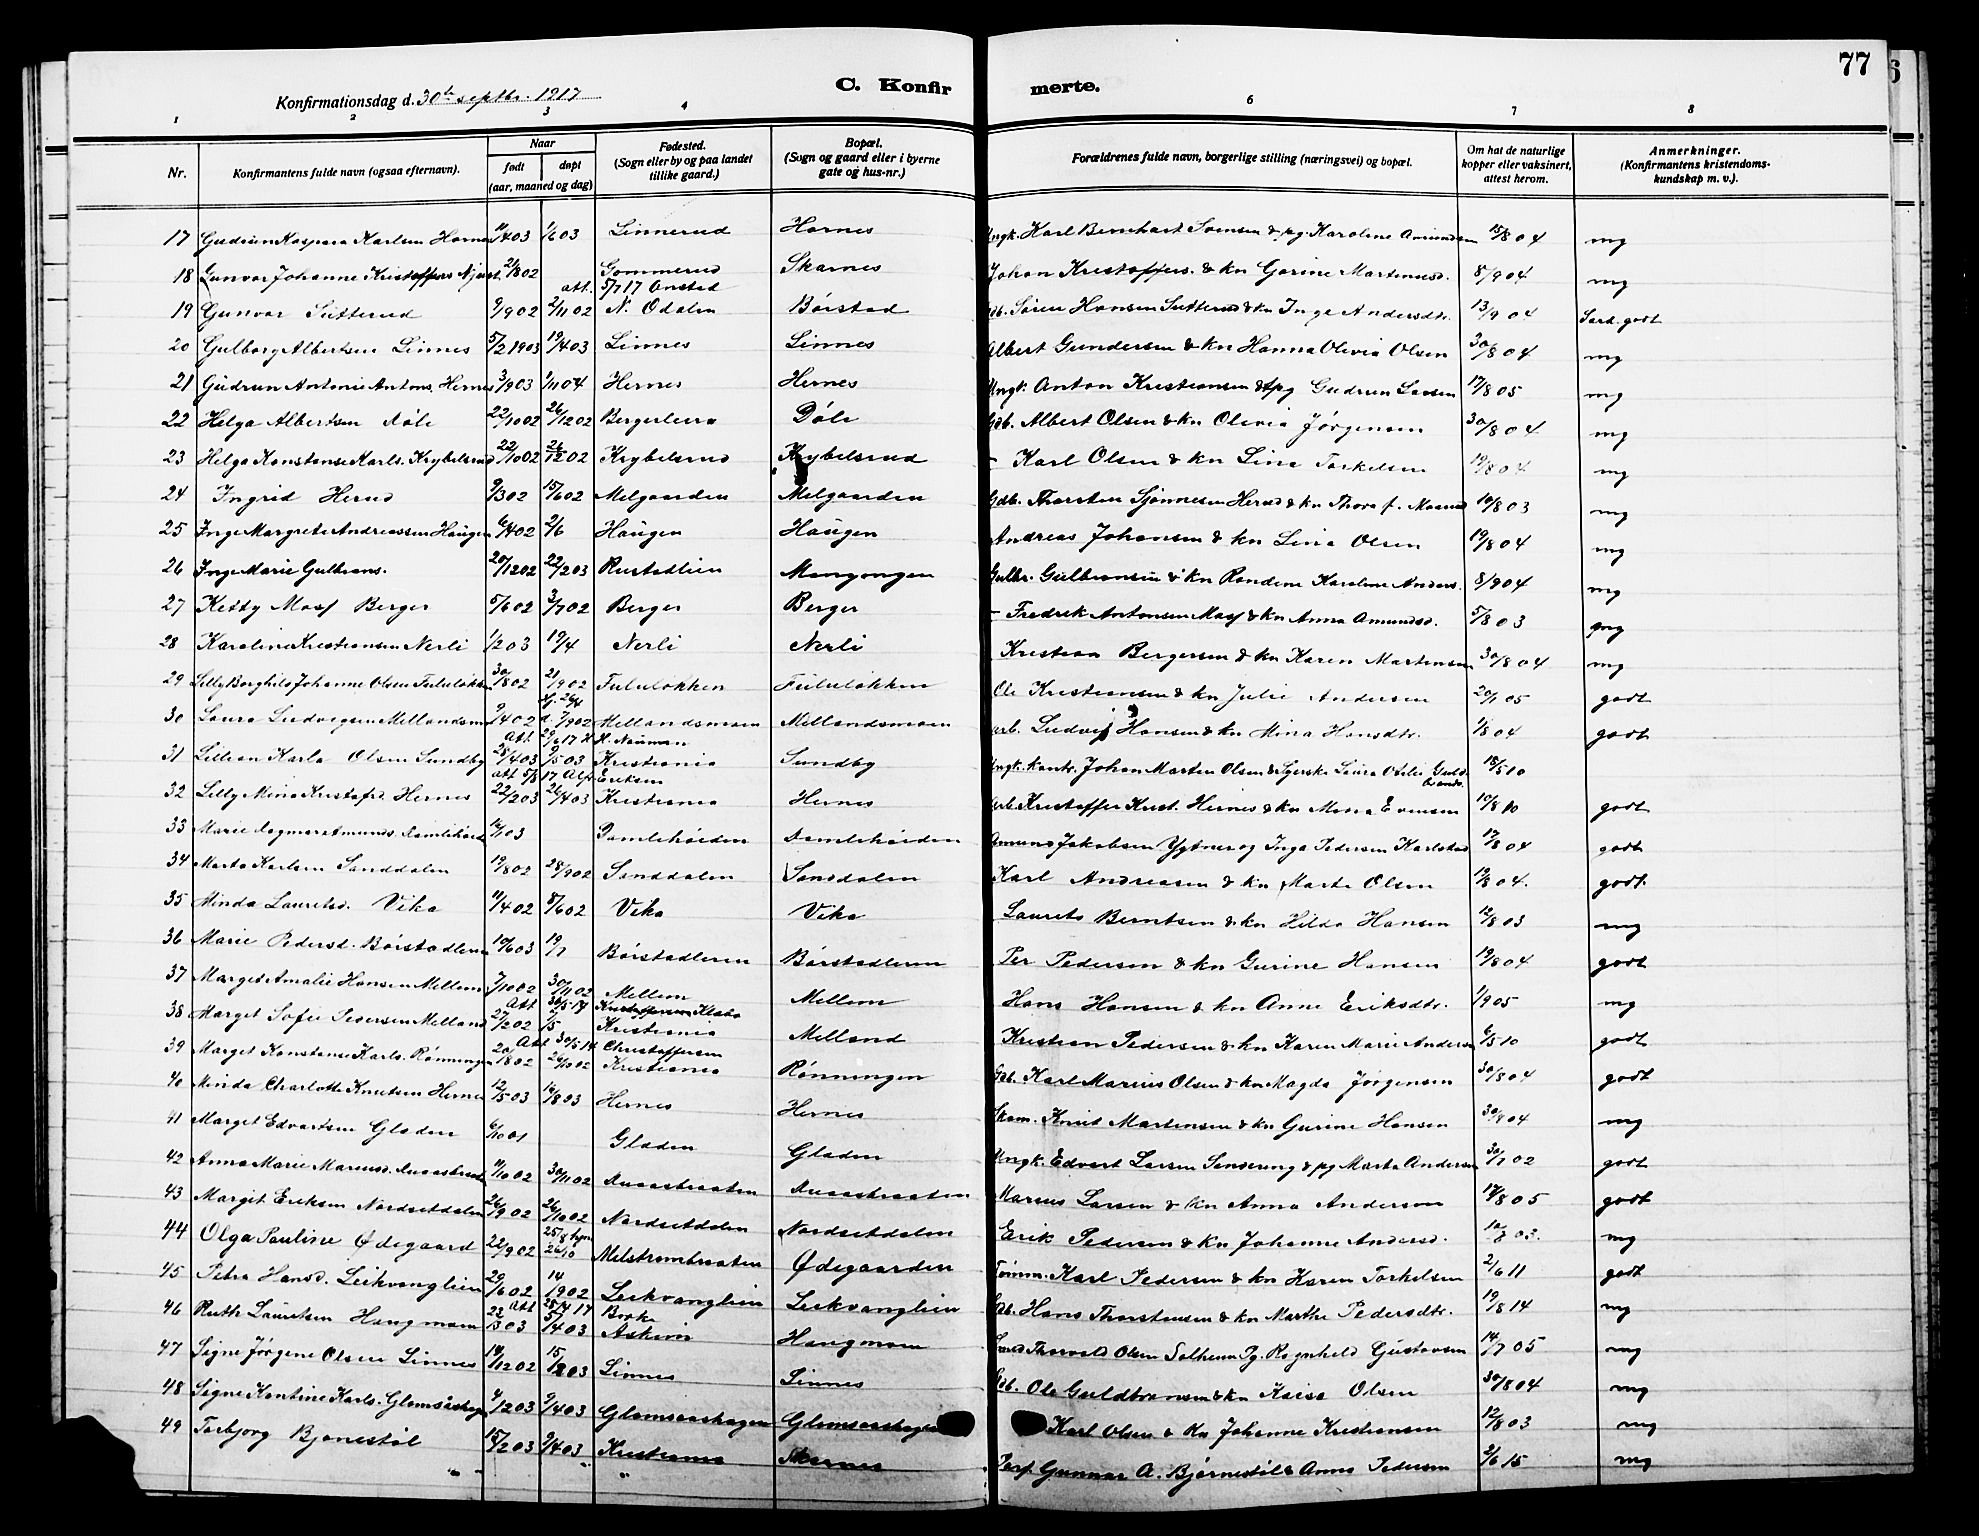 77
C. Konfir merte.
Konfirmationsdag d. 30te septbr. 1917
1 2 3 4 6 7 8
Nr. Konfirmantens fulde navn (ogsaa efternavn). Naar født døpt (aar, maaned og dag) Fødested. (Sogn eller by og paa landet tillike gaard.) Bopæl. (Sogn og gaard eller i byerne gate og hus-nr.) Forældrenes fulde navn, borgerlige stilling (næringsvei) og bopæl. Om hat de naturlige kopper eller vaksinert, attest herom. Anmerkninger. (Konfirmantens kristendoms-kundskap m. v.).
17 Gudrun Kaspara Karlsen Hornes 1/6 03 Linnerud Hornes Ungk. Karl Bernhart Svensen & pg. Karoline Amundsen 15/8 04 mg
18 Gunvor Johanne Kristoffers 2/8 02 Gommerud Skarnes Johan Kristoffers. & kn Gorine Martinusd. 8/9 04 mg
att. 5/7 17 Onstad
19 Gunvor Sætterud 9/9 02 2/11 02 N. Odalen Børstad Søren Hansen Sætterud & kn Inge Andersdtr. 13/9 04 Særd. godt
20 Gulborg Albertsen Linnes 5/2 1903 19/4 03 Linnes Linnes Albert Gundersen & kn Hanna Olivia Olsen 30/8 04 mg
21 Gudrun Antonie Antons. Hernes 3/9 03 1/11 04 Hernes Hernes Ungk. Anton Kristiansen & pg Gudrun Larsen 17/8 05 mg
22 Helga Albertsen Døli 22/10 02 26/12 02 Bergerleira Døli Gdb. Albert Olsen & kn Olivia Jørgensen 30/8 04 mg
23 Helga Konstanse Karls. Krybelsrud 22/10 02 26/12 02 Krybelsrud Krybelsrud - Karl Olsen & kn Lina Torkelsen 19/8 04 mg
24 Ingrid Herud 9/3 02 15/6 02 Melgaarden Melgaarden Gdb. Thorsten Sjønnesen Herud & kn Thora f. 10/8 03 mg
25 Inga Margrete Andreassen Haugen 6/4 02 2/6 Haugen Haugen Andreas Johansen & kn Lina Olsen 19/8 04 mg
26 Inga Marie Gulbrans. 20/12 02 22/2 03 Rustadlien Mangongen Gulbr. Gulbransen & kn Randine Karoline Anders. 8/9 04 mg
27 Ketty Berger 5/6 02 3/7 02 Berger Berger - Fredrik Antonsen & kn Anna Amundsd. 5/8 03 mg
28 Karoline Kristiansen Nerli 1/2 03 19/4 Nerli Nerli Kristian Bergersen & kn Karen Martinsen 30/8 04 mg
29 Lilly Borghild Johanne Olsen Fululøkken 30/8 02 21/9 02 Fululøkken Fululøkken Ole Kristiansen & kn Julie Andersen 20/1 05 godt
30 Laura Ludvigsen Mellandsmoen 9/4 02 7/9 02 Mellandsmoen Mellandsmoen arb. Ludvig Hansen & kn Mina Hansdtr. 1/8 04 godt
Att. 29/6 17 H. Nauman
31 Lillian Karla Olsen Sundby 28/4 03 9/5 03 Kristiania Sundby Ungk. kontr. Johan Martin Olsen & Syerske Laura Otilie Guldbrands. 18/5 10
att 5/8 17 Alfr. Eriksen
32 Lilly Mina Kristofd. Hernes 22/2 03 26/4 03 Kristiania Hernes arb. Kristoffer Krist. Hernes & kn Mina Evensen 10/8 10 godt
33 Marie Dagmar Amunds. 1/1 03 Damlehøiden Damlehøiden Amund Jakobsen og Inga Pedersen Karlstad 17/8 04 godt
34 Marta Karlsen Sanddalen 19/8 02 28/9 02 Sanddalen Sanddalen Karl Andreasen & kn Marte Olsen 19/8 04. godt.
35 Minda Lauretsd. Vika 11/4 02 8/6 02 Vika Vika Laurets Berntsen & kn Hilda Hansen 12/8 03 mg
36 Marie Pedersd. Børstadleiren 10/6 03 19/7 Børstadleren Børstadleren Per Pedersen & kn Gurine Hansen 19/8 04 godt
37 Marget Amalie Hansen Mellem 7/10 02 30/11 02 Mellem Mellem Hans Hansen & kn Anne Eriksdtr. 1/9 05 mg
Att 30/5 17 Klæbo
38 Marget Sofie Pedersen Melland 27/2 02 /5 Kristiania Melland Kristian Pedersen & kn Karen Marie Andersen 6/5 10 godt
Att 30/5 14 Christoffersen
39 Marget Konstanse Karls. Rønningen 20/8 02 26/10 02 Kristiania Rønningen Gdb. Karl Marius Olsen & kn Magda Jørgensen 30/8 04 godt
40 Minda Charlotte Knutsen Hernes 12/5 03 16/8 03 Hernes Hernes Skom. Knut Martinsen & kn Gurine Hansen 30/8 04 mg
41 Marget Edvartsen Gladen 6/10 01 Gladen Gladen Ungk. Edvart Larsen & pg Marta Andersen 30/7 02 godt
42 Anna Marie Mariusd. 11/10 02 30/11 02 Marius Larsen & kn Anna Andersen 17/8 05 godt
43 Margit Eriksen Nordsetdalen 26/9 02 26/10 02 Nordsetdalen Nordsetdalen Erik Pedersen & kn Johanne Andersd. 10/8 03. mg
44 Olga Pauline Ødegaard 22/9 02 25/8 hjm 26/10 Melstrombraaten Ødegaarden Tømm. Karl Pedersen & kn Karen Torkelsen 2/6 11 godt
45 Petra Hansd. Leikvanglien 29/6 02 14/9 02 Leikvanglien Leikvanglien Gdb. Hans Thorstensen & kn Marthe Pedersdtr. 19/8 14 mg
Att 25/4 17 Borke
46 Ruth Lauritsen Haugmoen 23/1 03 5/4 03 Askim Haugmoen Thorvald Olsen Solheim Pg. Ragnhild Gustavsen 14/7 05 mg
47 Signe Jørgine Olsen Linnes 14/12 02 15/2 03 Linnes Linnes Gdb. Ole Guldbransen & kn Kaisa Olsen 30/8 04 mg
48 Signe Kantine Karls. Glomsaashagen 9/2 03 9/4 03 Glomsaashagen Glomsaashagen Karl Olsen & kn Johanne Kristiansen 12/8 03 mg
49 Torbjørg Bjønestøl 15/2 03 9/4 03 Kristiania Skarnes Gunnar A. Bjørnestøl & Anna Pedersen 2/6 15 mg